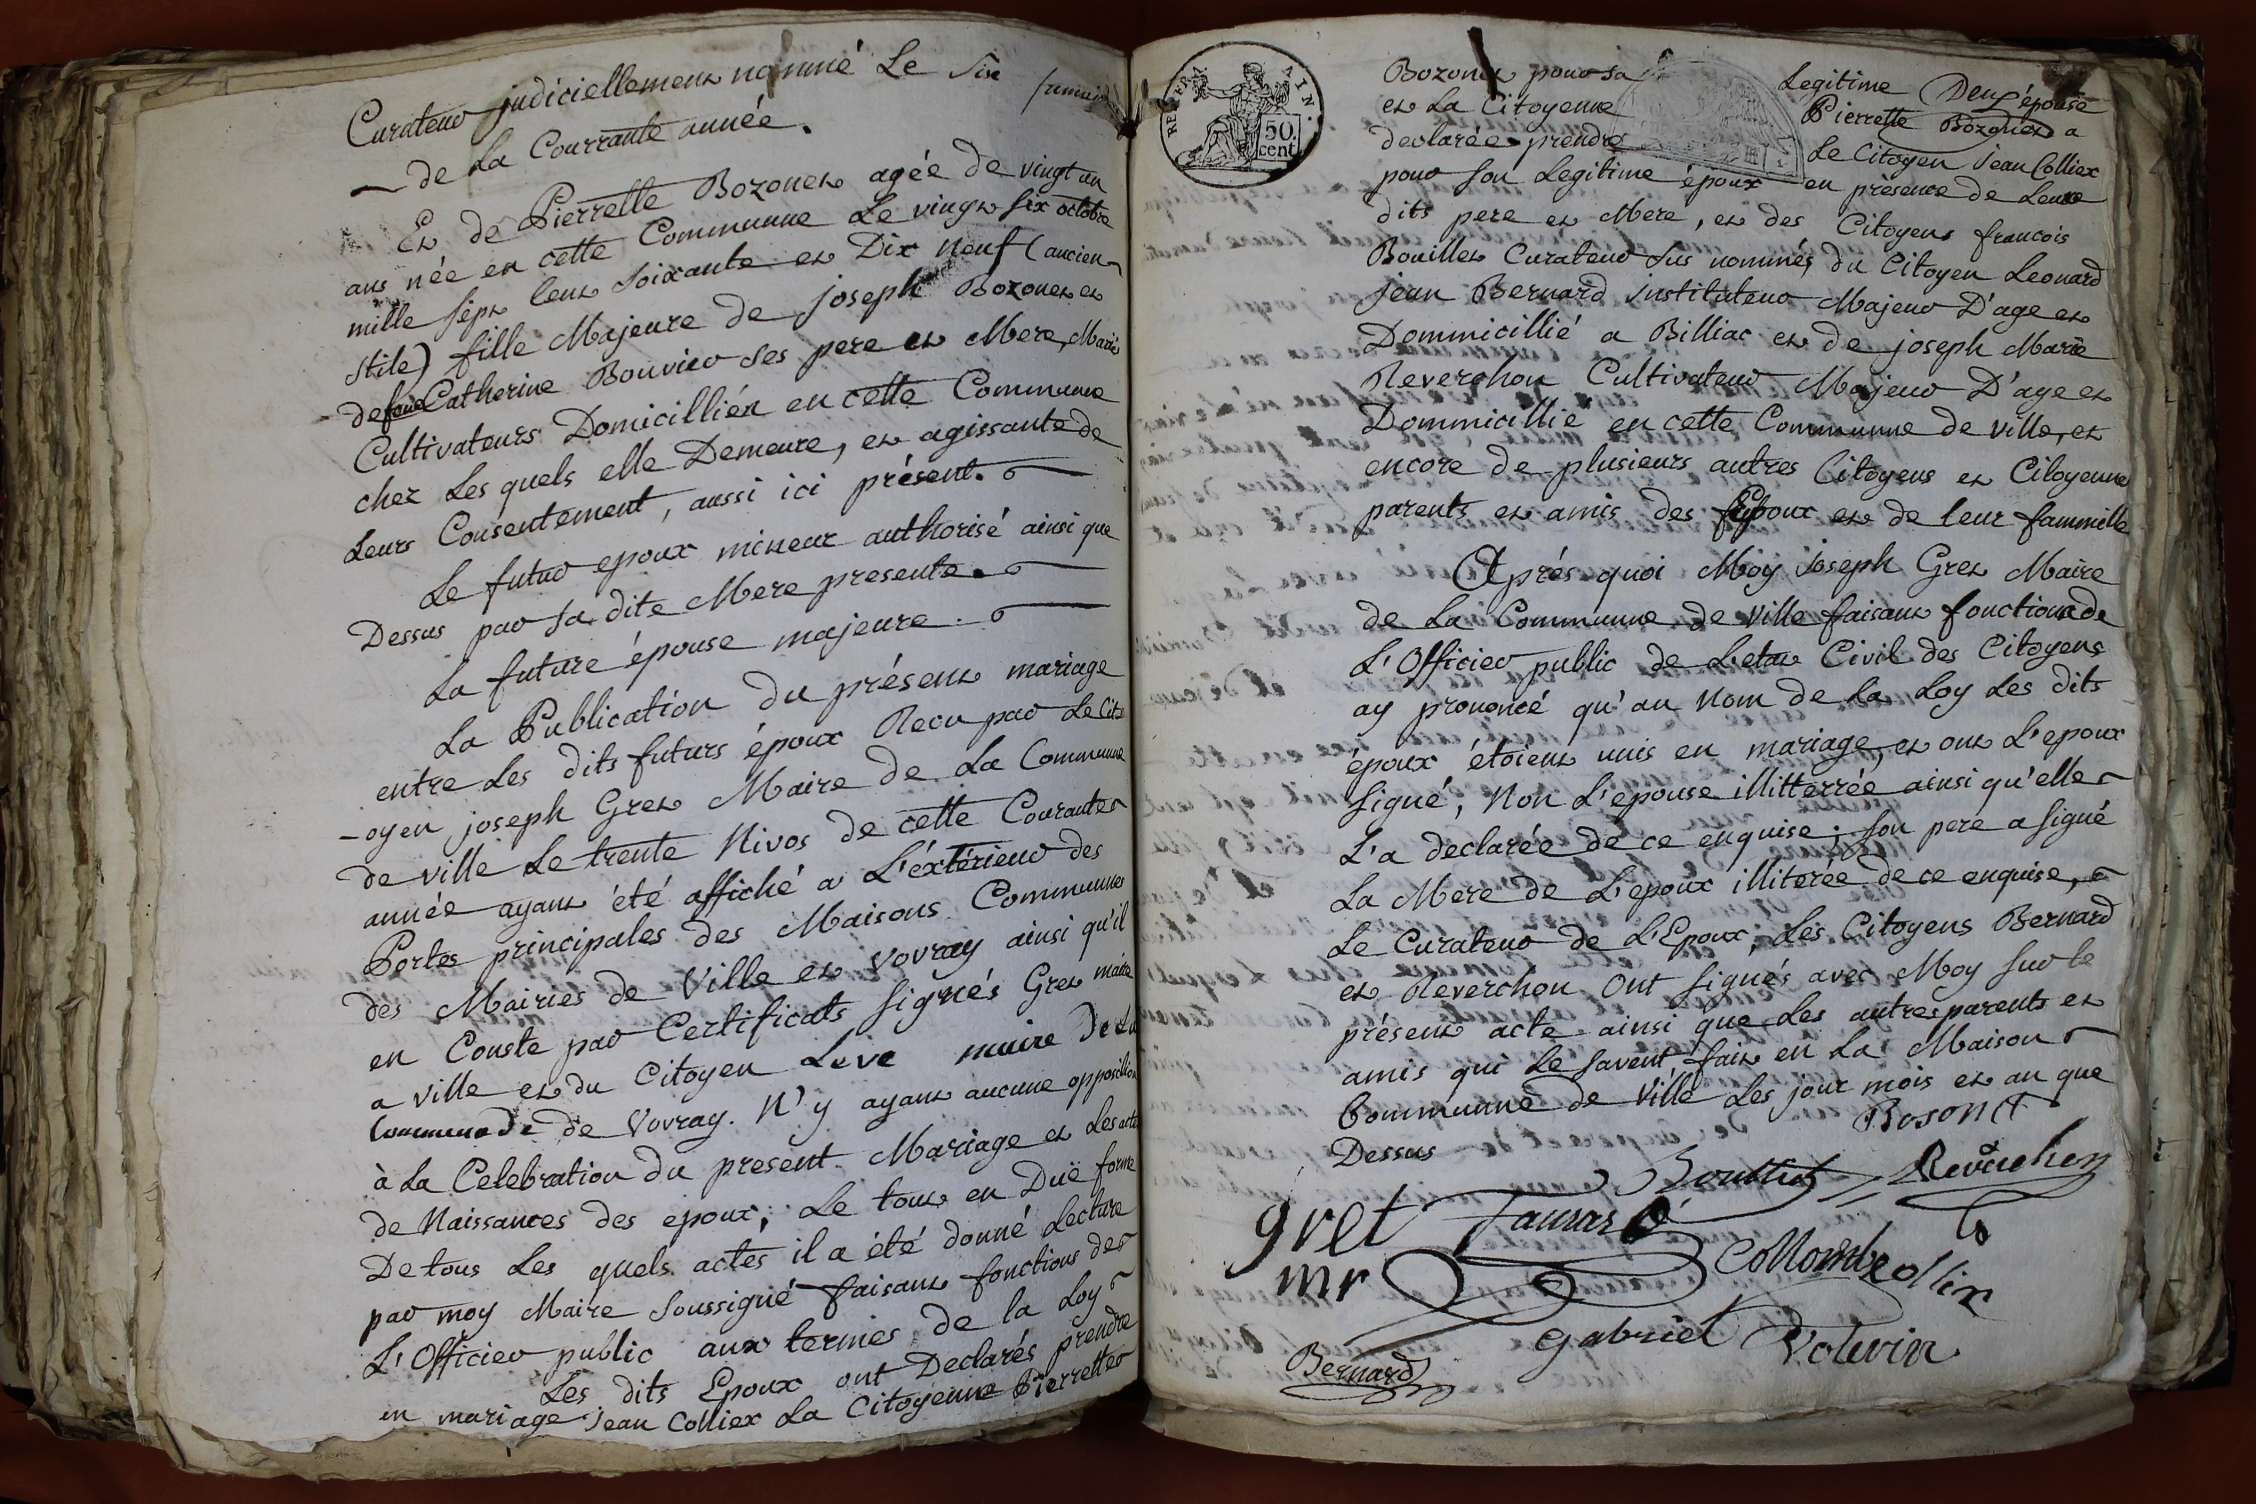 Curateur judiciellement nommé Le Six frimair
de La Courrante année.
Et de Pierrette Bozonet agée de vingt un
ans née en cette Communne Le vingt six octobre
mille sept Cent soixante et Dix neuf (ancien
stile) fille Majeure de joseph Bozonet et
defeue Catherine Bouvier ses pere et Mere, Mariés
Cultivateurs Domicilliér en cette Communne
chez Les quels elle Demeure, et agissante de
Leurs Consentement, aussi ici présent.
Le futur epoux mineur authorisé ainsi que
Dessus par sa dite Mere presente.
La future épouse majeure.
La Publication du présent mariage
entre Les dits futurs époux Recu par Le Cit
-oyen joseph Gret Maire de La Communne
de ville Le trente Nivos de cette Courante
année ayant été affiché a L'éxtérieur des
Portes principales des Maisons Communnes
des Mairies de Ville et Vovray ainsi qu'il
en Conste par Certificats signés Gret maire
a ville et du Citoyen Leve maire De La
Commune de de Vovray. N'y ayant aucune opposition
à La Celebration du present Mariage et Les actes
de Naissances des epoux; Le tout en Duë forme
De tous Les quels actes il a été donné Lecture
par moy Maire soussigné faisant fonctions de
L'Officier public aux termes de la Loy
Les dits Epoux ont Declarés prendre
en mariage jean Colliex La Citoyenne Pierrette
REP. FRA. AIN.
50.
cent
Bozonet pour sa Legitime épouse
et La Citoyenne Pierrette Bozonet a
declarée prendre Le Citoyen jean Colliex
pour son Legitime époux en présence de Leurs
dits pere et Mere, et des Citoyens francois
Bouillet Curateur sus nommés, du Citoyen Leonard
jean Bernard Instituteur Majeur D'age et
Dommicillié a Billiac et de joseph Marie
Reverchon Cultivateur Majeur D'age et
Dommicillié en cette Communne de ville, et
encore de plusieurs autres Citoyens et Citoyenne
parents et amis des Epoux et de leur fammille
Aprés quoi Moy joseph Gret Maire
de La Communne de ville faisant fonctions de
L'Officier public de L'etat Civil des Citoyens
ay prononcé qu'au Nom de La Loy Les dits
époux étoient unis en mariage, et ont L'epoux
signé, Non L'epouse illitterrée ainsi qu'elle
L'a declarée de ce enquise; son pere a signé
La Mere de L'epoux illiterée de ce enquise,
Le Curateur de L'Epoux, Les Citoyens Bernard
et Reverchon Ont signés avec Moy sur le
présent acte ainsi que Les autres parents et
amis qui Le savent fait en La Maison
Communne de Ville Les jour mois et an que
Dessus
Bosonet
Bouillet Reverchon
gret
mr
Collomb Collix
gabriel
Bernard